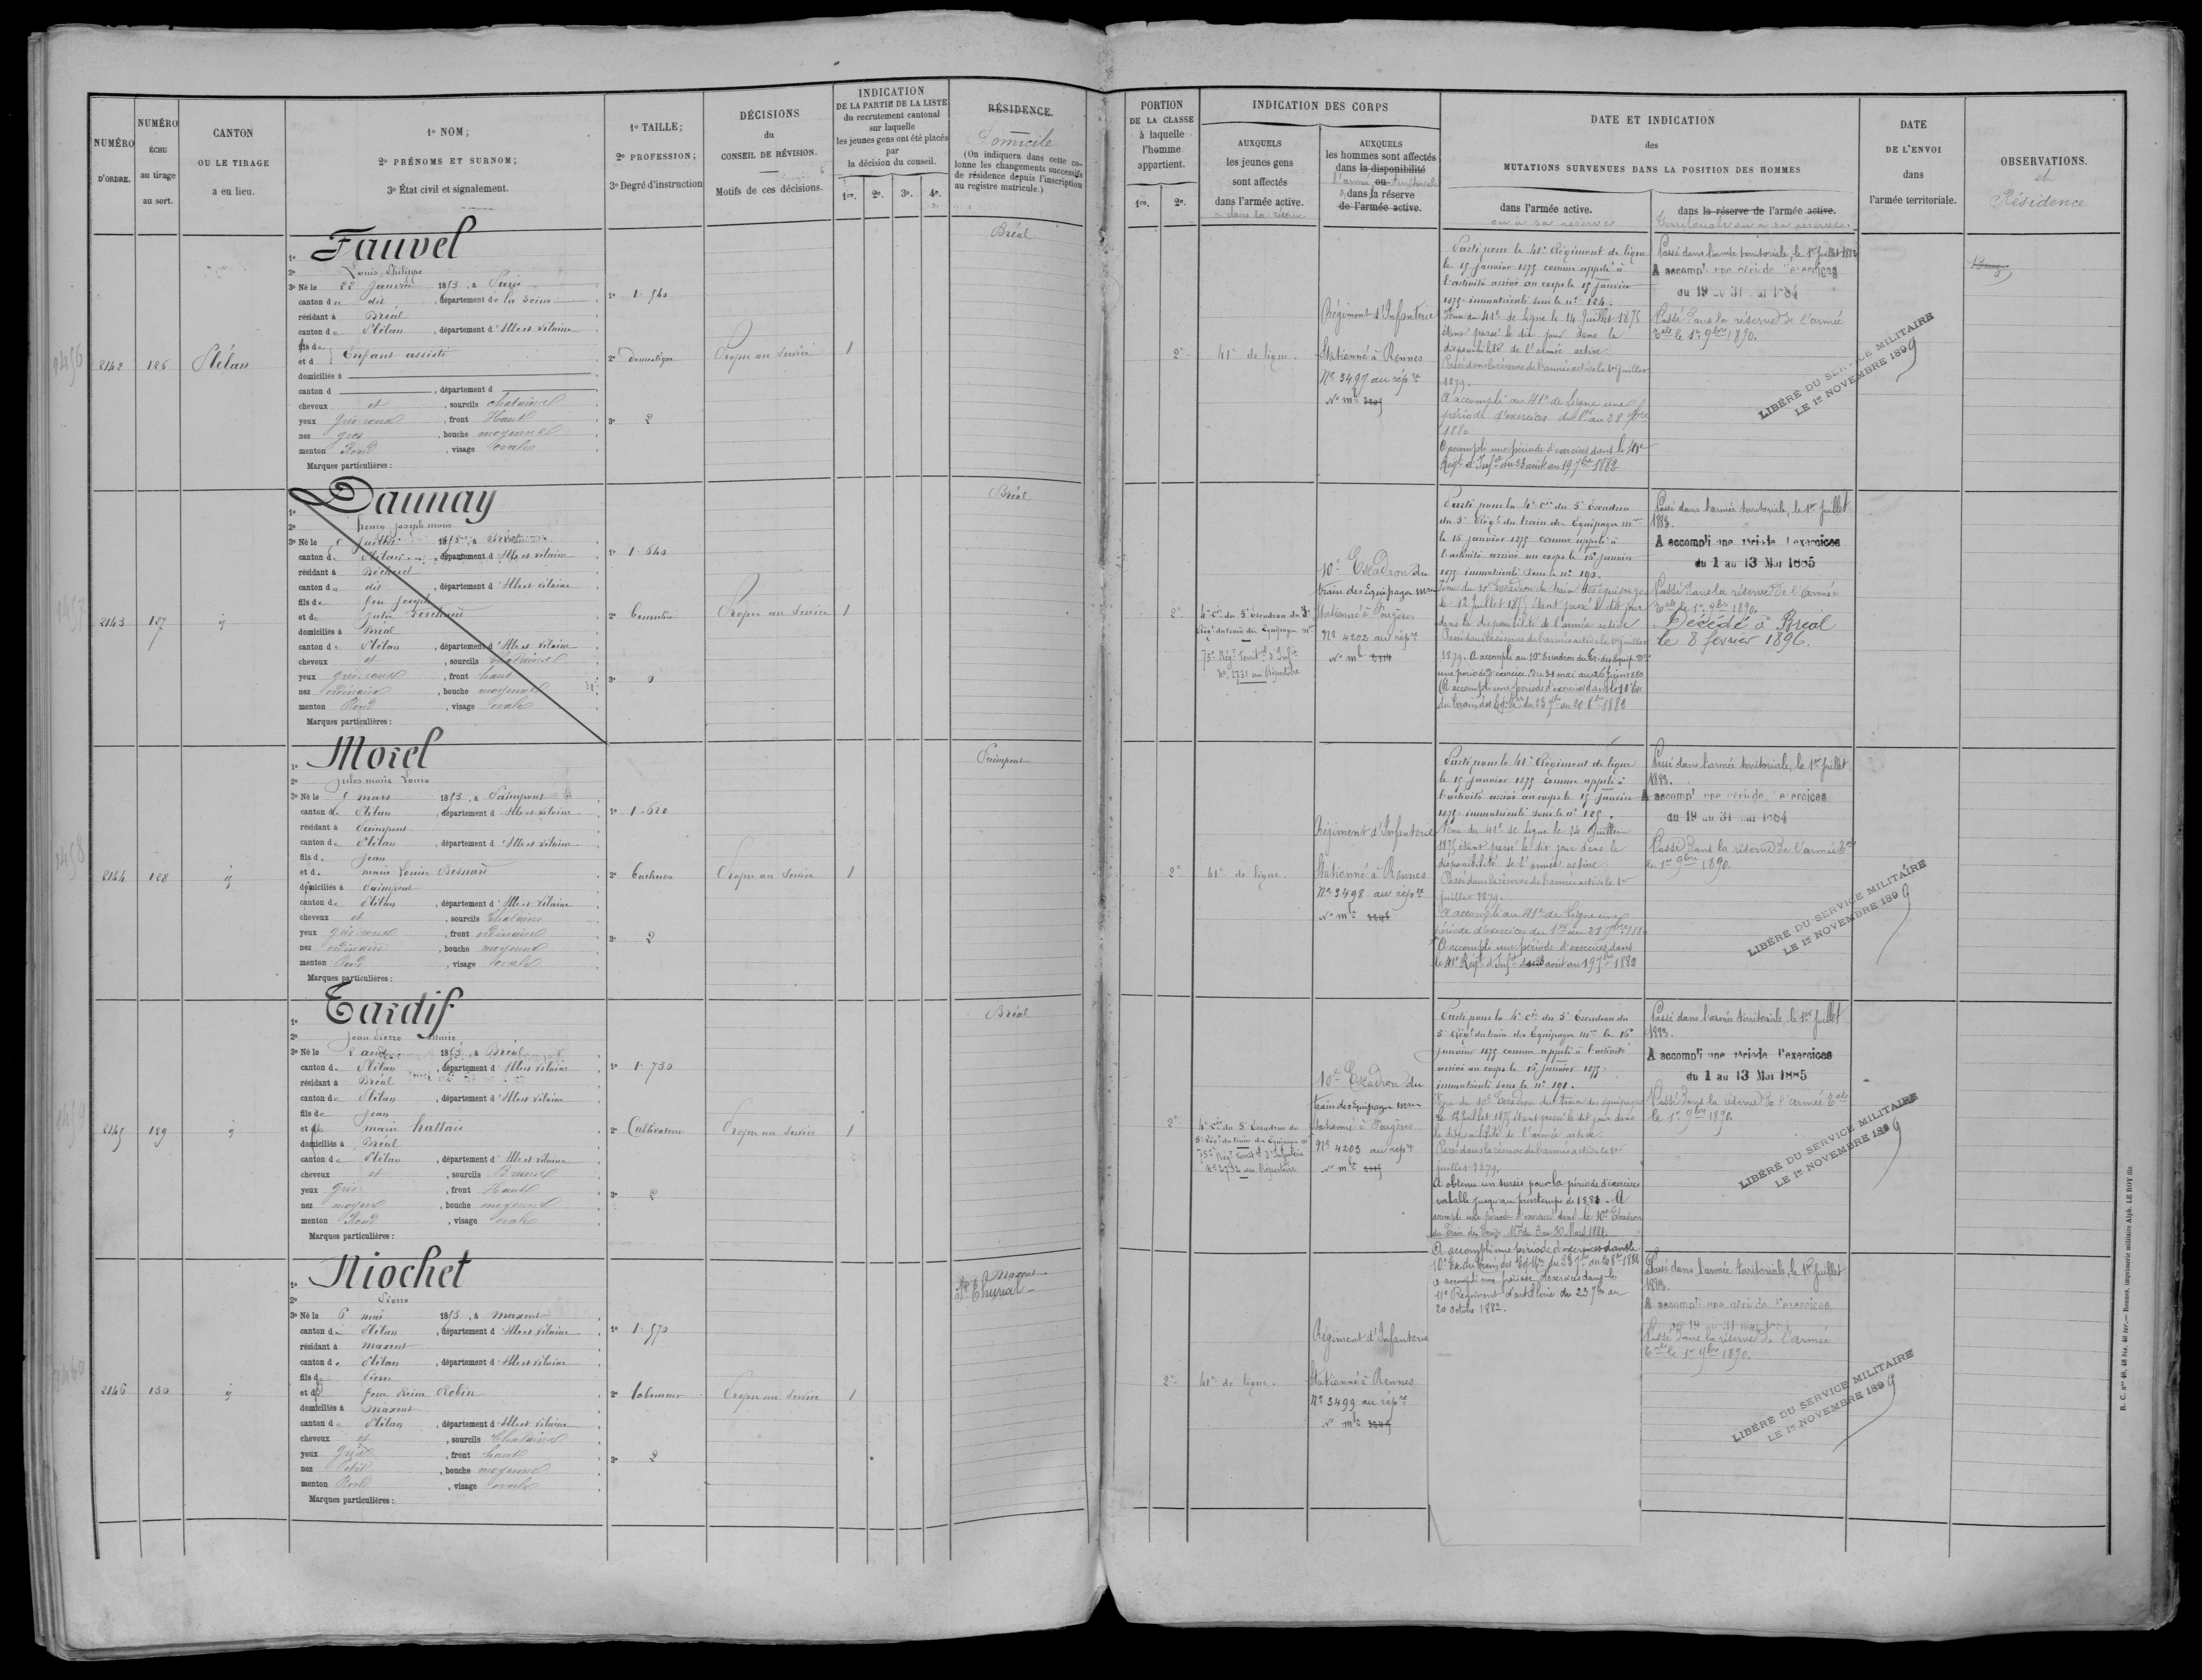 NUMÉRO D'ORDRE.
NUMÉRO ÉCHU au tirage au sort.
CANTON OU LE TIRAGE a eu lieu.
1º NOM;
2º PRÉNOMS ET SURNOM;
3º État civil et signalement.
1º TAILLE;
2º PROFESSION;
3º Degré d'instruction
DÉCISIONS
du
CONSEIL DE RÉVISION.
Motifs de ces décisions.
INDICATION
DE LA PARTIE DE LA LISTE
du recrutement cantonal
sur laquelle
les jeunes gens ont été placés
par
la décision du conseil.
1re. 2e. 3e. 4e.
RÉSIDENCE.
Domicile
(On indiquera dans cette colonne
les changements successifs
de résidence depuis l'inscription
au registre matricule.)
2142
126
Plélan
Fauvel
2º Louis Philippe
3º Né le 22 Janvier 1853, à Paris
canton du dit, département de la Seine
résidant à Bréal
canton de Plélan, département d'Ille et Vilaine
fils de
et d
Enfant assisté
domiciliés à
canton d , département d
cheveux et , sourcils chatains
yeux gris-roux, front Haut
nez gros, bouche moyenne
menton Rond, visage ovale
Marques particulières:
1º 1.540
2º Domestique
3º 2
Propre au Service
1
Bréal
2143
127
Daunay
2º henry joseph marie
canton de Plélan, département d'Ille et Vilaine
résidant à Bécherel
canton du dit, département d'Ille et Vilaine
fils de feu Joseph
et de Julie
domiciliés à Bréal
canton de Plélan, département d'Ille et Vilaine
cheveux et , sourcils chatains
yeux gris-roux, front haut
nez ordinaire, bouche moyenne
menton Rond, visage ovale
Marques particulières:
1º 1.640
3º 0
Propre au Service
1
Bréal
2144
128
Morel
2º jules marie Louis
3º Né le mars 1853, à Paimpont
canton de Plélan, département d'Ille et Vilaine
résidant à Paimpont
canton de Plélan, département d'Ille et Vilaine
fils de Jean
et de marie Louise Besnard
domiciliés à Paimpont
canton de Plélan, département d'Ille et Vilaine
cheveux et , sourcils chatains
yeux gris-roux, front ordinaire
nez ordinaire, bouche moyenne
menton Rond, visage ovale
Marques particulières:
1º 1.620
3º 2
Propre au Service
1
Paimpont
2145
129
Tardif
2º Jean Pierre Marie
3º Né le 2 août 1853, à Bréal
canton de Plélan, département d'Ille et Vilaine
résidant à Bréal
canton de Plélan, département d'Ille et Vilaine
fils de Jean
et de marie hallais
domiciliés à Bréal
canton de Plélan, département d'Ille et Vilaine
cheveux et , sourcils Bruns
yeux gris, front Haut
nez moyen, bouche moyenne
menton Rond, visage ovale
Marques particulières:
1º 1.730
2º Cultivateur
3º 2
Propre au Service
1
Bréal
2146
130
Niochet
2º Pierre
3º Né le 6 mai 1853, à maxent
canton de Plélan, département d'Ille et Vilaine
résidant à maxent
canton de Plélan, département d'Ille et Vilaine
fils de Pierre
et de Reine Robin
domiciliés à maxent
canton de Plélan, département d'Ille et Vilaine
cheveux et , sourcils Chatains
yeux Gris, front haut
nez Petit, bouche moyenne
menton Rond, visage ovale
Marques particulières:
1º 1.570
2º laboureur
3º 2
Propre au Service
1
Maxent
St Thurial
PORTION
DE LA CLASSE
à laquelle
l'homme
appartient.
1re. 2e.
INDICATION DES CORPS
AUXQUELS
les jeunes gens
sont affectés
dans l'armée active.
ou dans la réserve
AUXQUELS
les hommes sont affectés
dans la disponibilité
l'armée ou territoriale
dans la réserve
de l'armée active.
DATE ET INDICATION
des
MUTATIONS SURVENUES DANS LA POSITION DES HOMMES
dans l'armée active.
ou à sa réserve
dans la réserve de l'armée active.
territoriale ou à sa réserve.
DATE
DE L'ENVOI
dans
l'armée territoriale.
OBSERVATIONS.
et
Résidence
2e
41e de ligne.
Régiment d'Infanterie
Stationné à Rennes
No 3497 au répre
Parti pour le 41e Régiment de ligne
le 15 Janvier 1875 comme appelé à
l'activité arrivé au corps le 15 Janvier
1875 immatriculé sous le no 124.
Venu du 41e de ligne le 14 Juillet 1875
étant passé le dit jour dans la
disponibilité de l'armée active
Passé dans la réserve de l'armée active le 1er Juillet
1879.
A accompli au 41e de Ligne une
période d'exercices du 1er au 28 7bre
1880
A accompli une période d'exercices dans le 41e
Régt d'Infie du 23 août au 19 7bre 1882
Passé dans l'armée territoriale, le 1er Juillet 1883
A accompli une période d'exercices
du 19 au 31 mai 1884
Passé dans la réserve de l'armée
Tale le 1er 9bre 1890.
LIBÉRÉ DU SERVICE MILITAIRE
LE 1er NOVEMBRE 1899
2e
4e Cie du 5e Escadron du 3e
Régt du train des Equipages mres
75e Régt Territal d'Infie
No 2731 au Répertoire
10e Escadron du
train des Equipages mres
Stationné à Fougères
No 4202 au répre
Parti pour la 4e Cie du 5e Escadron
du 3e Régt du train des Equipages mres
le 15 Janvier 1875 comme appelé à
l'activité arrivé au corps le 15 Janvier
1875 immatriculé sous le no 190.
Venu du 10e Escadron du train des équipages
le 12 Juillet 1875 étant passé le dit jour
dans la disponibilité de l'armée active
Passé dans la réserve de l'armée active le 1er Juillet
1879. A accompli au 10e Escadron du Tr. des Equip. mres
une période d'exercices du 31 mai au 26 Juin 1880
A accompli une période d'exercices dans le 10e Esc
du train des Eq. mres du 23 7bre au 20 8bre 1882
Passé dans l'armée territoriale, le 1er Juillet
1883.
A accompli une période d'exercices
du 1 au 13 Mai 1885
Passé dans la réserve de l'armée
Tale le 1er 9bre 1890.
Décédé à Bréal
le 8 février 1896.
2e
41e de ligne.
Régiment d'Infanterie
Stationné à Rennes
No 3498 au répre
Parti pour le 41e Régiment de ligne
le 15 Janvier 1875 comme appelé à
l'activité arrivé au corps le 15 Janvier
1875 immatriculé sous le no 125.
Venu du 41e de ligne le 14 Juillet
1875 étant passé le dit jour dans la
disponibilité de l'armée active
Passé dans la réserve de l'armée active le 1er
juillet 1879.
A accompli au 41e de Ligne une
période d'exercices du 1er au 28 7bre 1880
A accompli une période d'exercices dans
le 41e Régt d'Infie du 23 août au 19 7bre 1882
Passé dans l'armée territoriale, le 1er Juillet
1883.
A accompli une période d'exercices
du 19 au 31 mai 1884
Passé dans la réserve de l'armée Tale
le 1er 9bre 1890.
LIBÉRÉ DU SERVICE MILITAIRE
LE 1er NOVEMBRE 1899
2e
4e Cie du 5e Escadron du
Régt du train des Equipages mres
75e Régt Territal d'Infanterie
No 2732 au Répertoire
10e Escadron du
train des Equipages mres
Stationné à Fougères
No 4203 au répre
Parti pour la 4e Cie du 5e Escadron du
Régt du train des Equipages mres le 15
janvier 1875 comme appelé à l'activité
arrivé au corps le 15 Janvier 1875
immatriculé sous le no 191.
Venu du 10e Escadron du train des équipages
le 12 Juillet 1875 étant passé le dit jour dans
la disponibilité de l'armée active
Passé dans la réserve de l'armée active le 1er
juillet 1879.
A obtenu un sursis pour la période d'exercices
valable jusqu'au printemps de 1881. A
accompli une période d'exercices dans le 10e Escadron
du Train des Equip. Mres du 3 au 30 Mars 1881.
A accompli une période d'exercices dans le
10e Esc du train des Eq. Mres du 23 7bre au 20 8bre 1882
A accompli une période d'exercices dans le
11e Régiment d'artillerie du 23 7bre au
20 octobre 1882.
Passé dans l'armée territoriale, le 1er Juillet
1883.
A accompli une période d'exercices
du 1 au 13 Mai 1885
Passé dans la réserve de l'armée Tale
le 1er 9bre 1890.
LIBÉRÉ DU SERVICE MILITAIRE
LE 1er NOVEMBRE 1899
2e
41e de ligne.
Régiment d'Infanterie
Stationné à Rennes
No 3499 au répre
Passé dans l'armée territoriale, le 1er Juillet
1883.
A accompli une période d'exercices
Passé dans la réserve de l'armée
Tale le 1er 9bre 1890.
LIBÉRÉ DU SERVICE MILITAIRE
LE 1er NOVEMBRE 1899